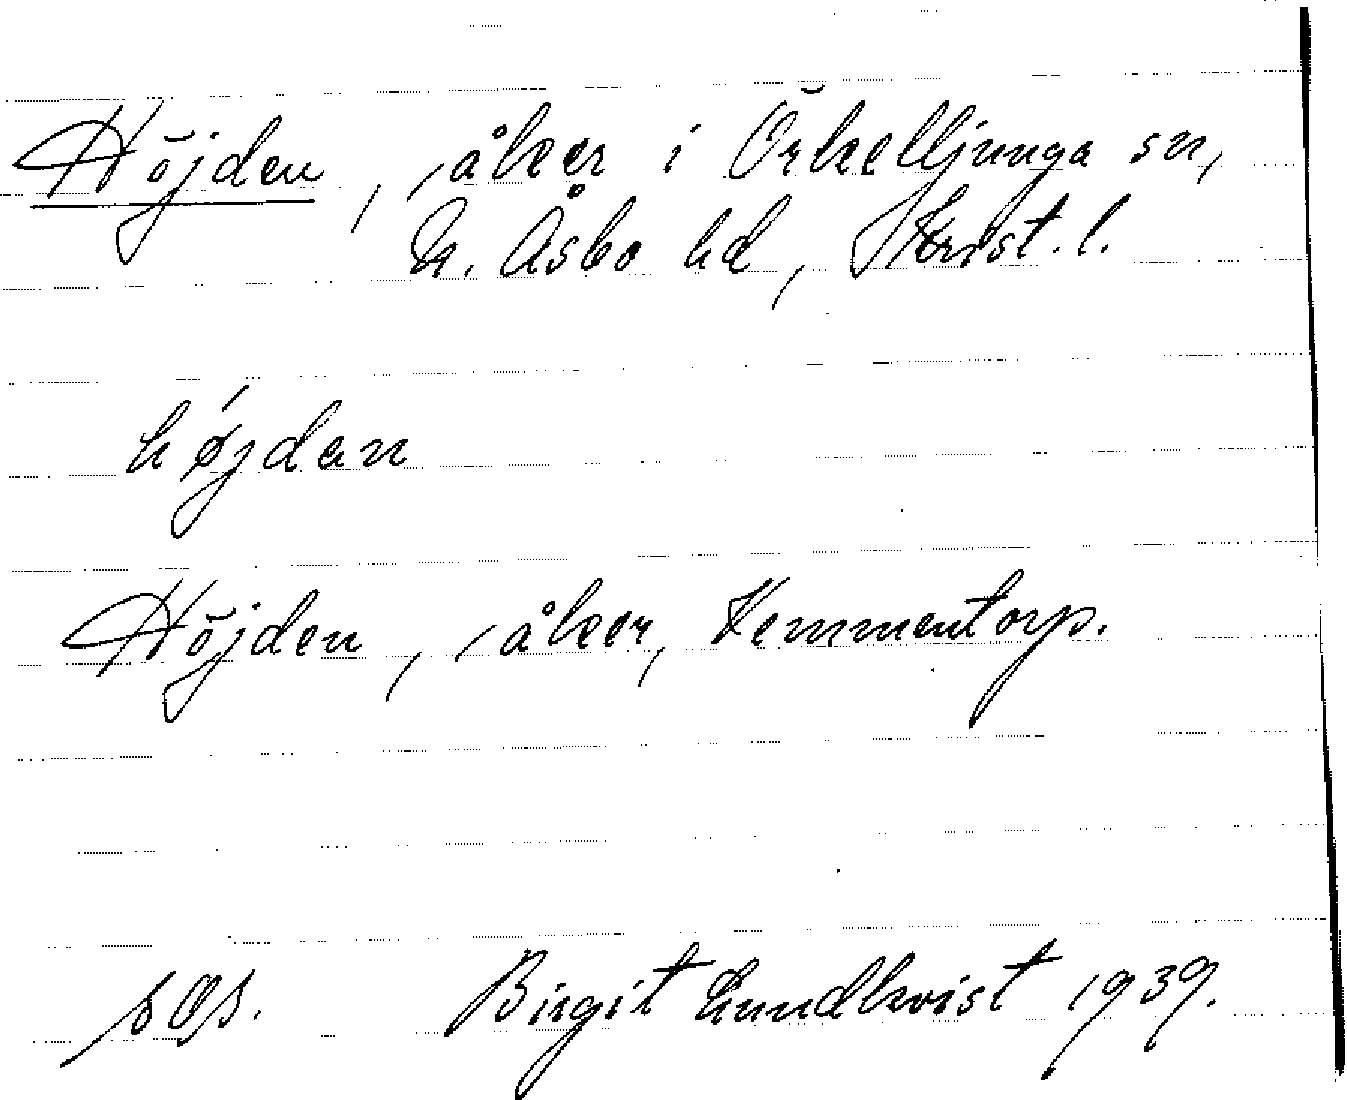 Höjden, åker i Örkelljunga sn,
N. Åsbo hd, Krist. l.
højdan
Höjden, åker, Hemmentorp.
Birgit Lundkvist 1939.